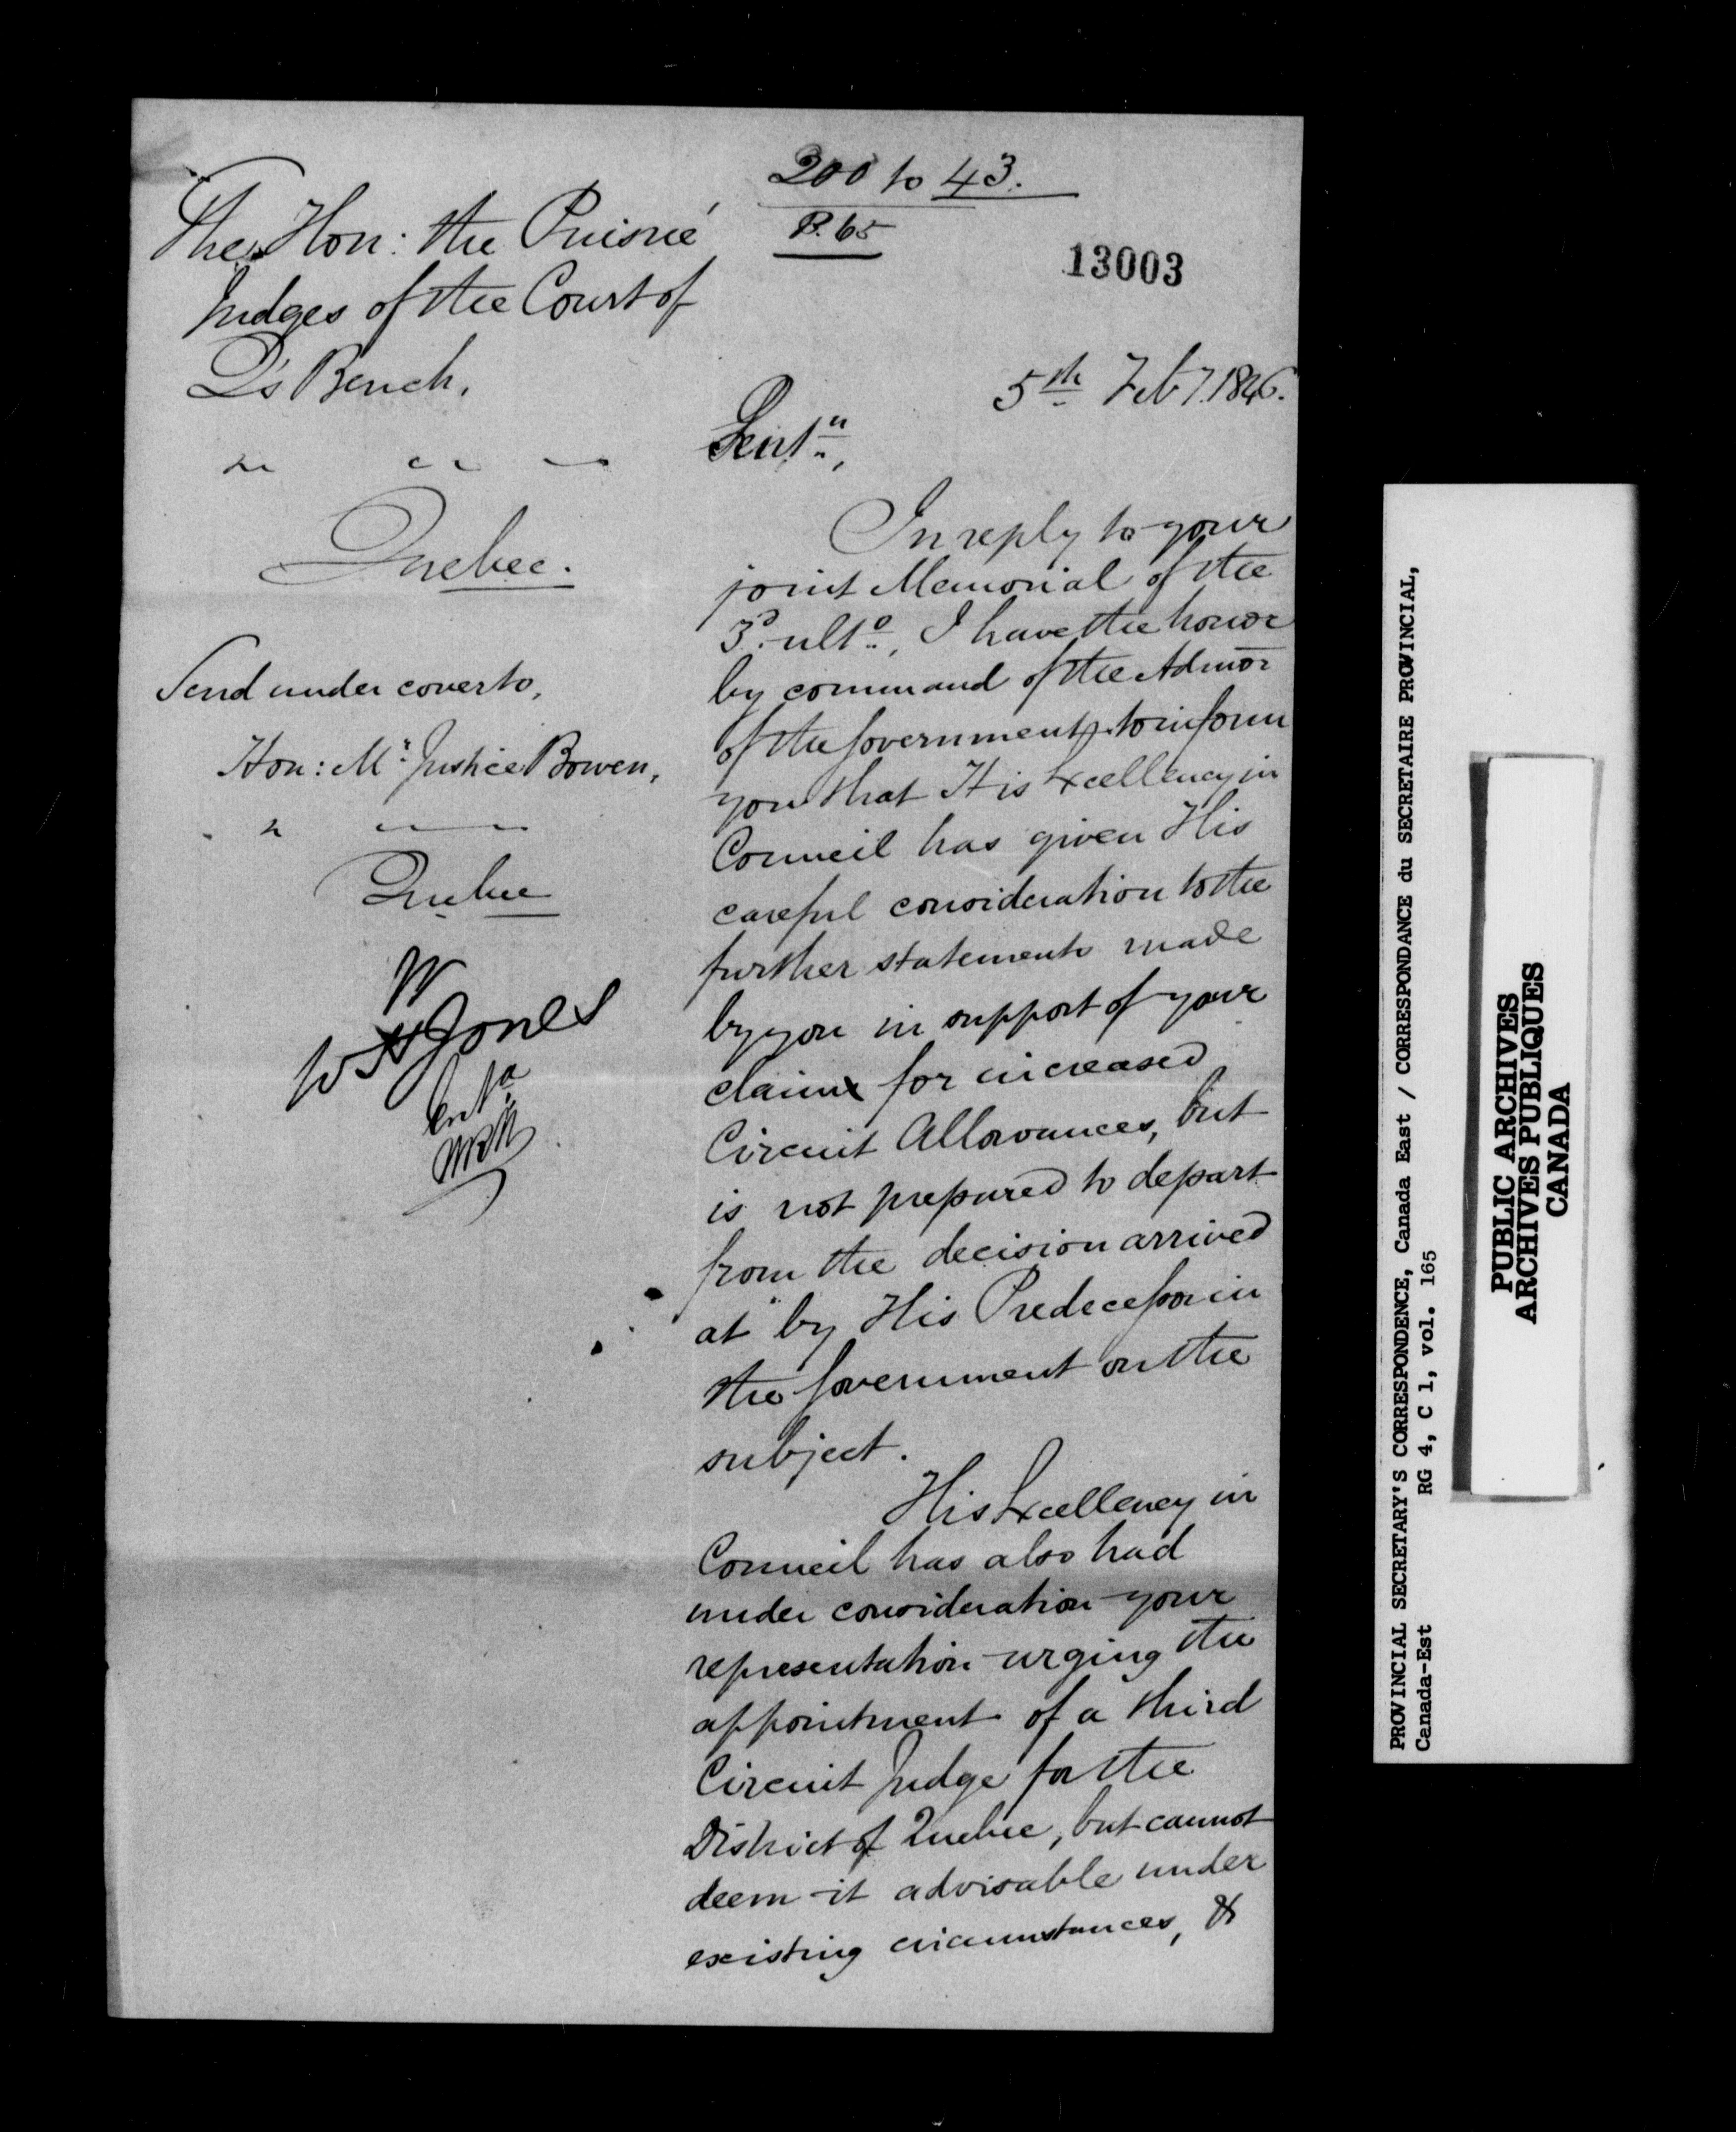 200 to 43.
P. 65
13003
The Hon: the Puisné
Judges of the Court of
Q's Bench,
Quebec.
Send under cover to,
Hon: Mr Justice Bowen,
Quebec
W H Jones
Entd
5th Feby. 1846.
Gentn,
In reply to your
joint Memorial of the
3d. ulto., I have the honor
by command of the Admor
of the Government, to inform
you that His Excellency in
Council has given His
careful consideration to the
further statements made
by you in support of your
claim for increased
Circuit Allowances, but
is not prepared to depart
from the decision arrived
at by His Predecessor in
the Government on the
subject.
His Excellency in
Council has also had
under consideration your
representation urging the
appointment of a third
Circuit Judge for the
District of Quebec, but cannot
deem it advisable under
existing circumstances, &
PROVINCIAL SECRETARY'S CORRESPONDENCE, Canada East / CORRESPONDANCE du SECRETAIRE PROVINCIAL,
Canada-Est RG 4, C 1, vol. 165
PUBLIC ARCHIVES
ARCHIVES PUBLIQUES
CANADA